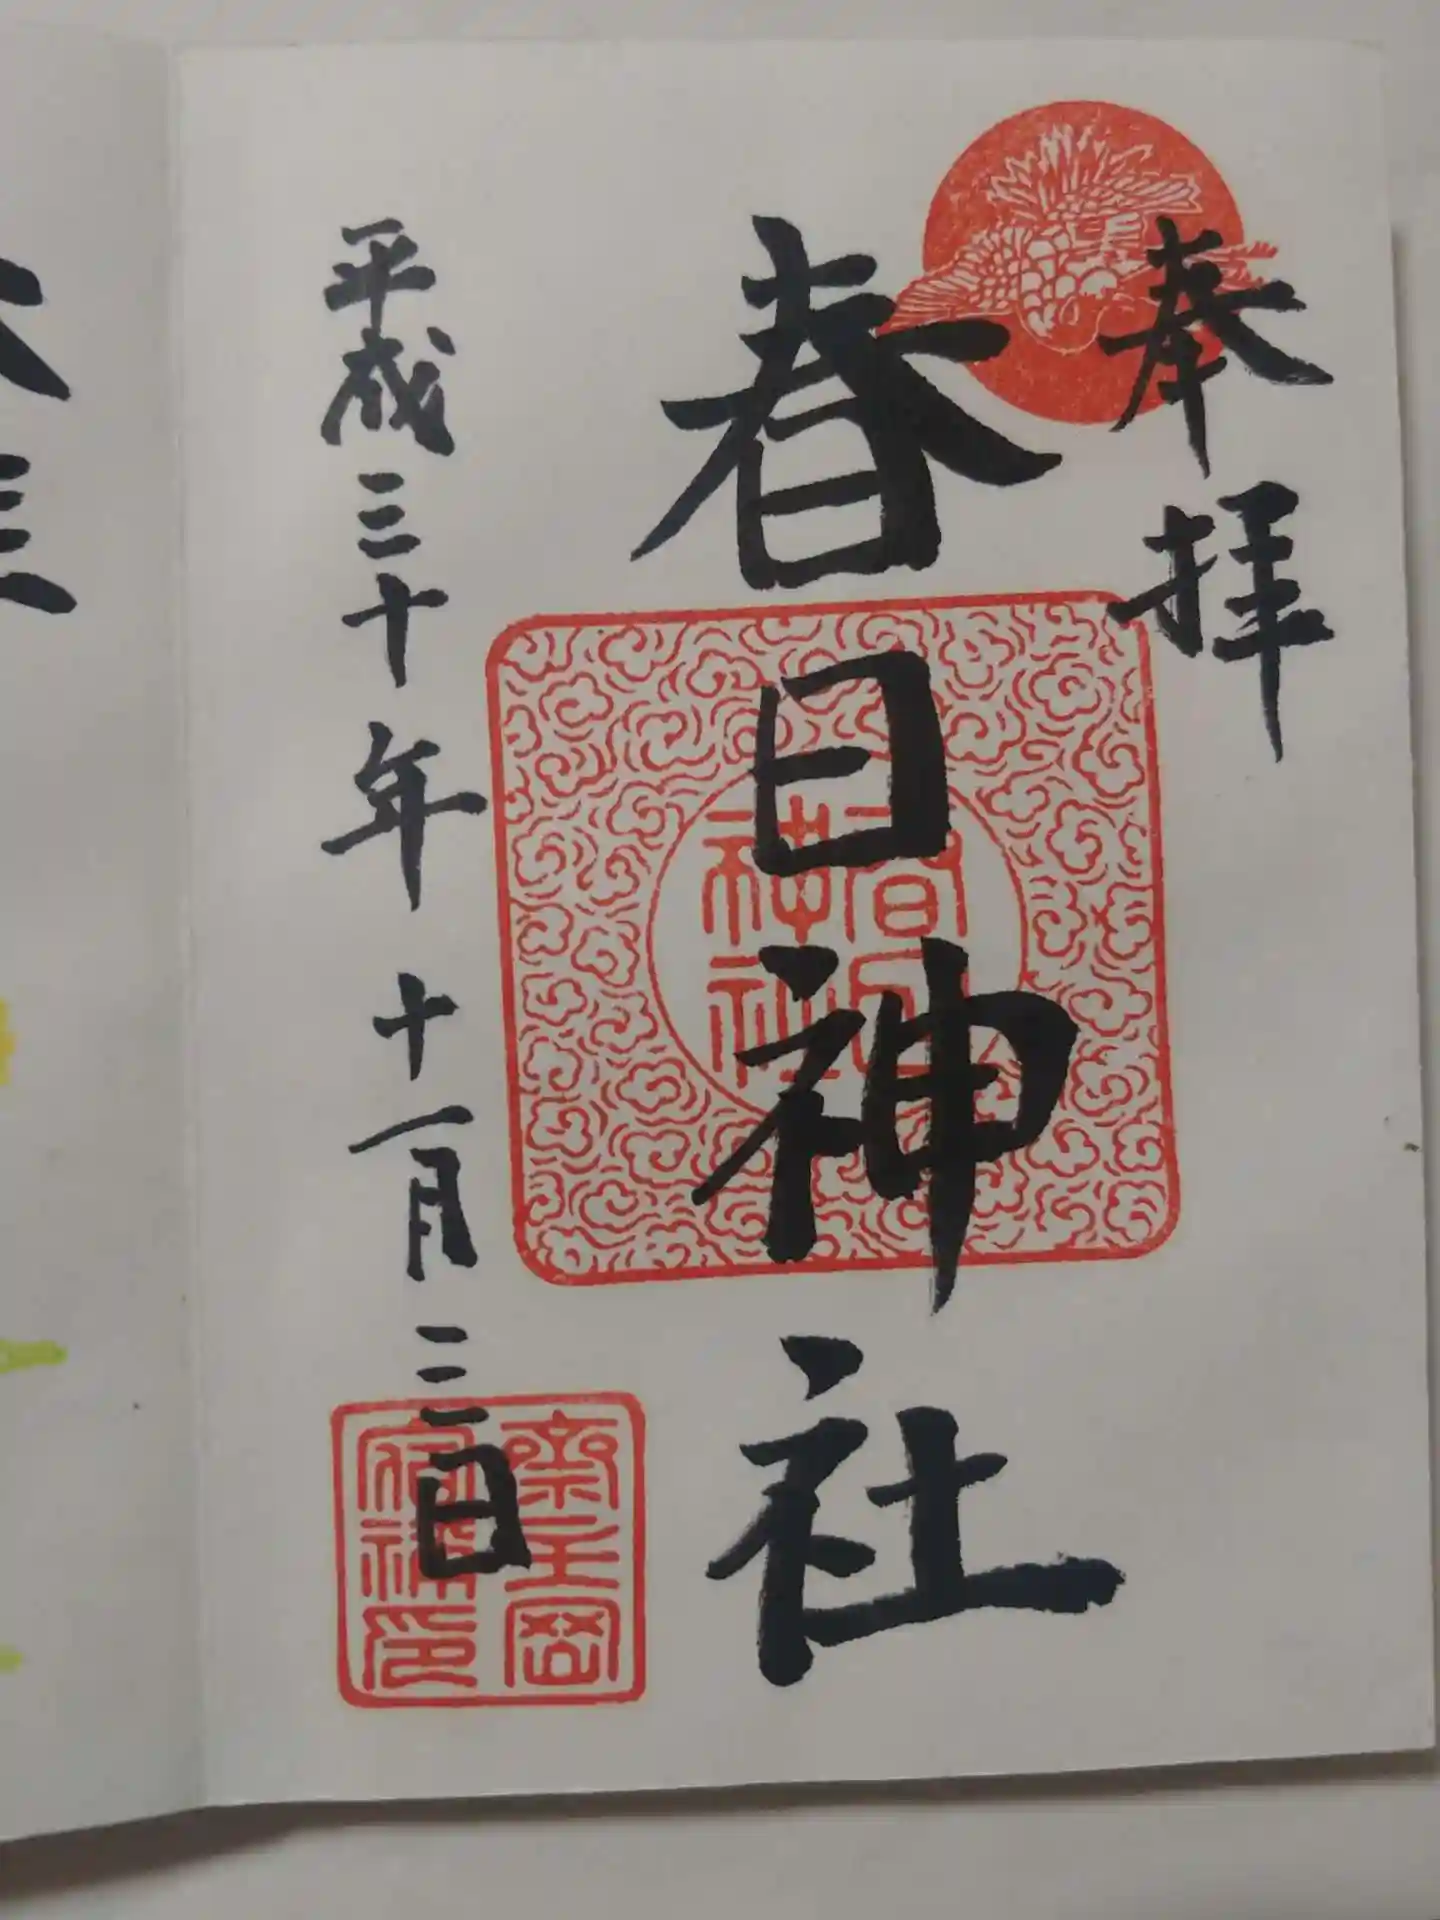 奉拝
春日神社
春日神社
平成三十年十一月三日